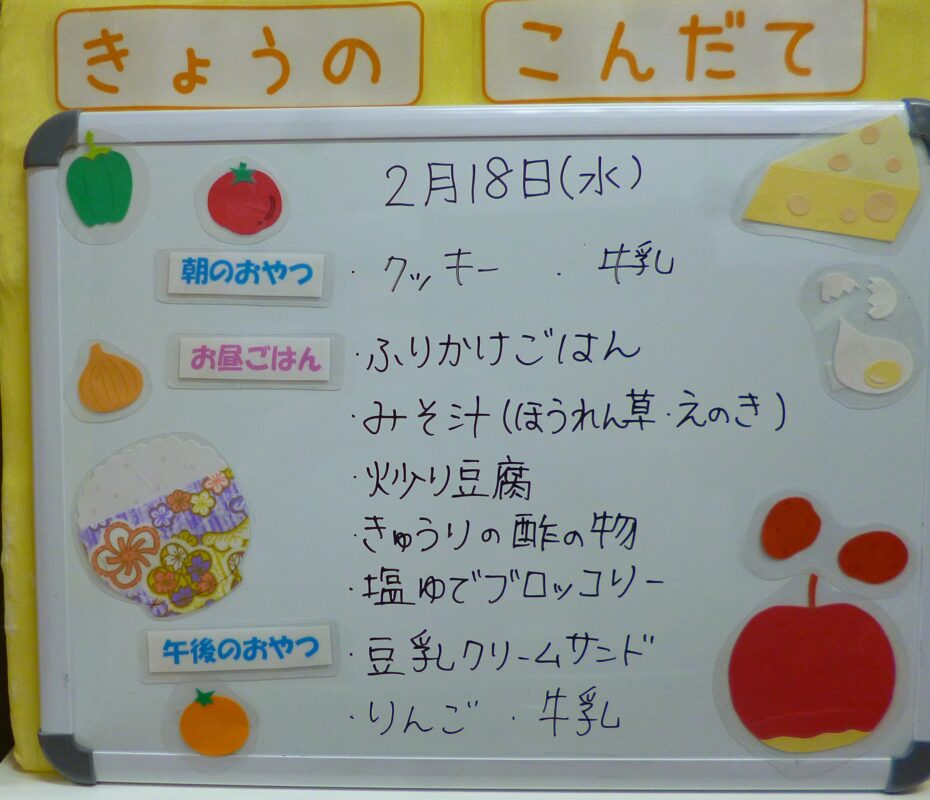 きょうの こんだて
2月18日(水)
朝のおやつ ・クッキー ・牛乳
お昼ごはん ・ふりかけごはん
・みそ汁(ほうれん草・えのき)
・炒り豆腐
・きゅうりの酢の物
・塩ゆでブロッコリー
午後のおやつ ・豆乳クリームサンド
・りんご ・牛乳